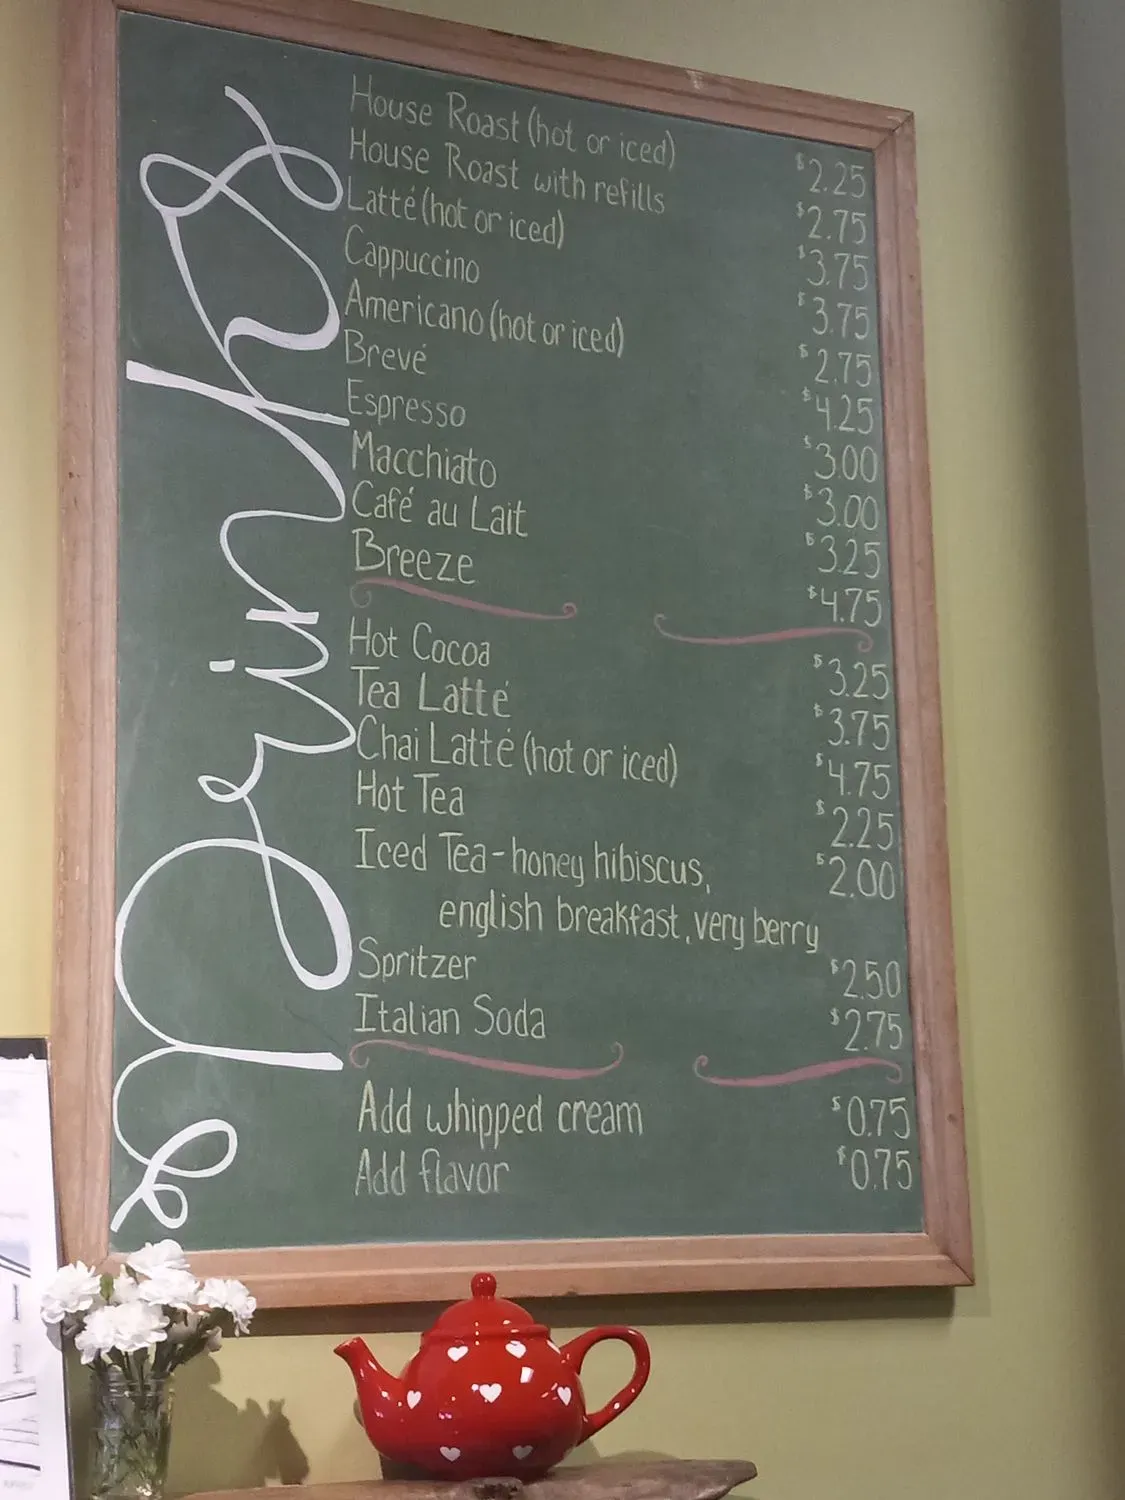 Drinks
House Roast (hot or iced) $2.25
House Roast with refills $2.75
Latté (hot or iced) $3.75
Cappuccino $3.75
Americano (hot or iced) $2.75
Brevé $4.25
Espresso $3.00
Macchiato $3.00
Café au Lait $3.25
Breeze $4.75
Hot Cocoa $3.25
Tea Latté $3.75
Chai Latté (hot or iced) $4.75
Hot Tea $2.25
Iced Tea - honey hibiscus, $2.00
english breakfast, very berry
Spritzer $2.50
Italian Soda $2.75
Add whipped cream $0.75
Add flavor $0.75